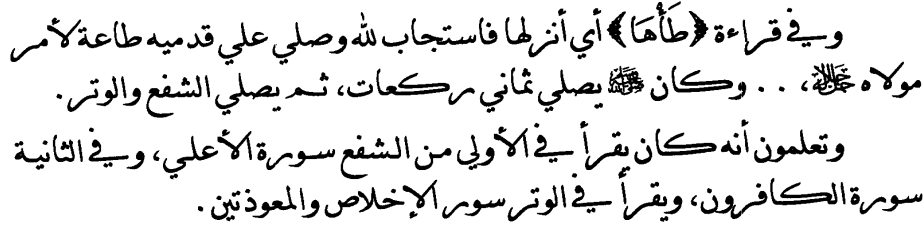 وفي قراءة ﴿طَأْهَا﴾ أي أنزلها فاستجاب لله وصلي علي قدميه طاعة لأمر
مولاه ﷻ، . . وكان ﷺ يصلي ثماني ركعات، ثم يصلي الشفع والوتر.
وتعلمون أنه كان يقرأ في الأولي من الشفع سورة الأعلي، وفي الثانية
سورة الكافرون، ويقرأ في الوتر سور الإخلاص والمعوذتين.